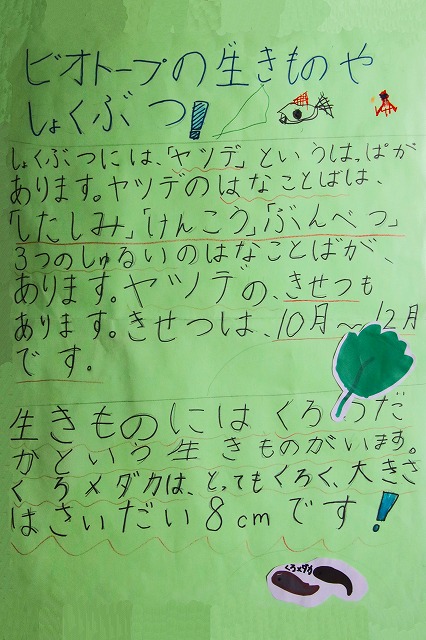 ビオトープの生きものや
しょくぶつ!
しょくぶつには、「ヤツデ」というはっぱが
あります。ヤツデのはなことばは、
「したしみ」「けんこう」「ぶんべつ」
3つのしゅるいのはなことばが、
あります。ヤツデの、きせつも
あります。きせつは、10月〜12月
です。
生きものにはくろ うだ
かという生きものがいます。
くろメダカは、とってもくろく、大きさ
はさいだい8cmです!
くろメダカ